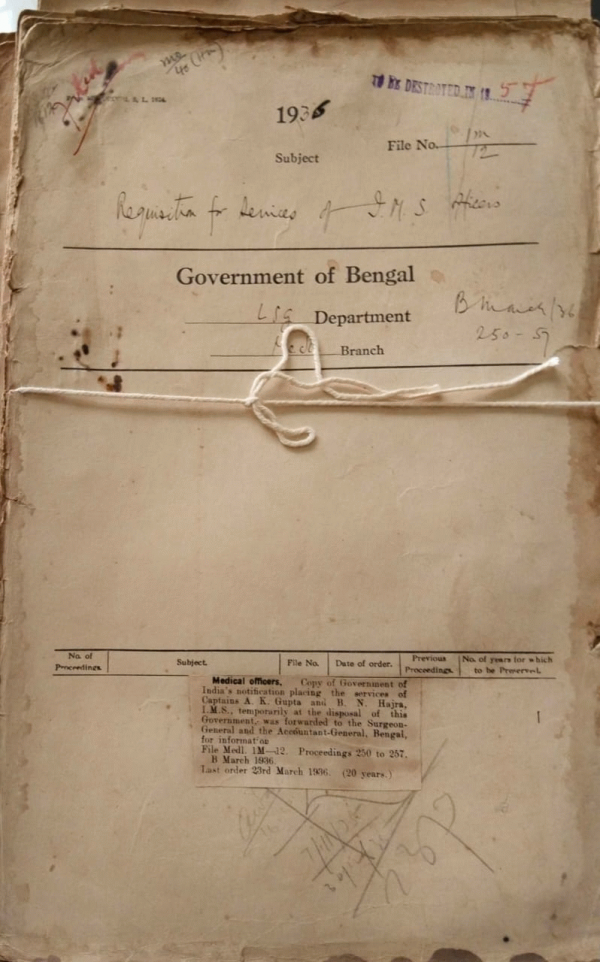 TO BE DESTROYED IN 1957
1936
File No. 1m/12
Subject
Requisition for Services of I.M.S. Officers
Government of Bengal
LSG Department
B March/36
250-57
Medl Branch
No. of Proceedings. Subject. File No. Date of order. Previous Proceedings. No. of years for which to be Preserved.
Medical officers. Copy of Government of
India's notification placing the services of
Captains A. K. Gupta and B. N. Hajra,
I.M.S., temporarily at the disposal of this
Government, was forwarded to the Surgeon-
General and the Accountant-General, Bengal,
for information
File Medl. 1M—12. Proceedings 250 to 257.
B March 1936.
Last order 23rd March 1936. (20 years.)